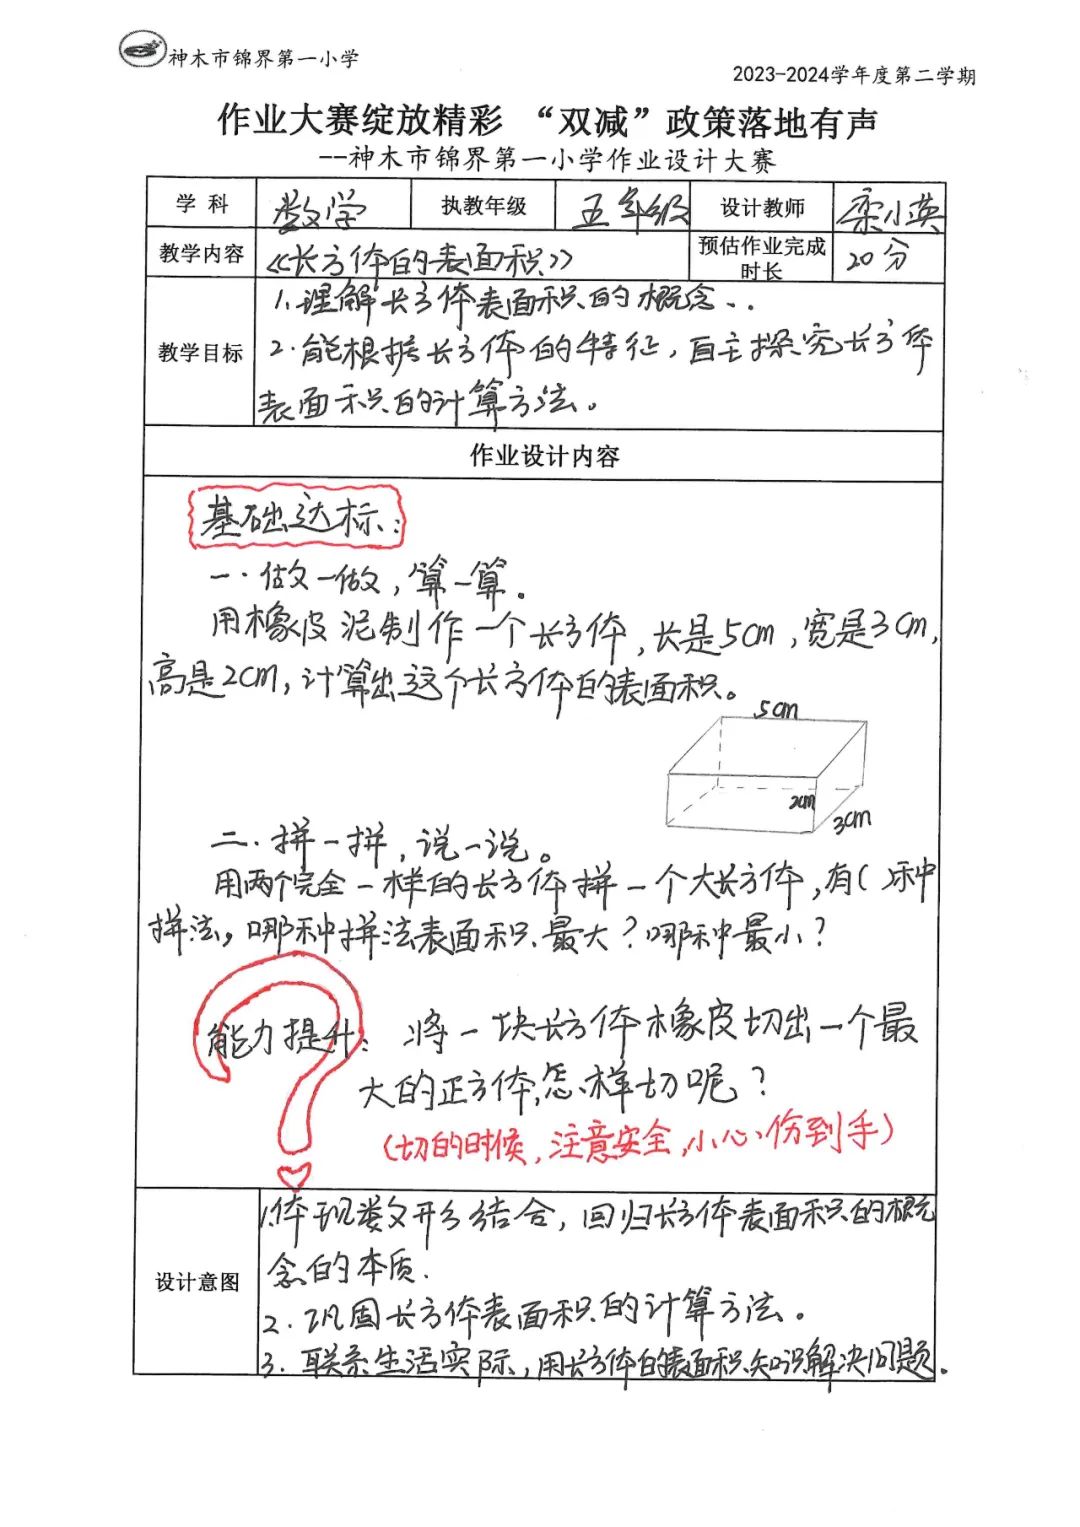 神木市锦界第一小学
2023-2024学年度第二学期
作业大赛绽放精彩 “双减”政策落地有声
--神木市锦界第一小学作业设计大赛
学 科 数学 执教年级 五年级 设计教师 栾小英
教学内容 《长方体的表面积》 预估作业完成时长 20分
教学目标
1.理解长方体表面积的概念、.
2.能根据长方体的特征,自主探究长方体
表面积的计算方法。
作业设计内容
基础达标:
一.做一做,算一算。
用橡皮泥制作一个长方体,长是5cm,宽是3cm,
高是2cm,计算出这个长方体的表面积。
5cm
2cm
3cm
二.拼一拼,说一说。
用两个完全一样的长方体拼一个大长方体,有( )种
拼法。哪种拼法表面积最大?哪种最小?
能力提升:将一块长方体橡皮切出一个最
大的正方体,怎样切呢?
(切的时候,注意安全,小心份到手)
设计意图
1.体现数形结合,回归长方体表面积的概
念的本质.
2.巩固长方体表面积的计算方法。
3.联系生活实际,用长方体的表面积知识解决问题.